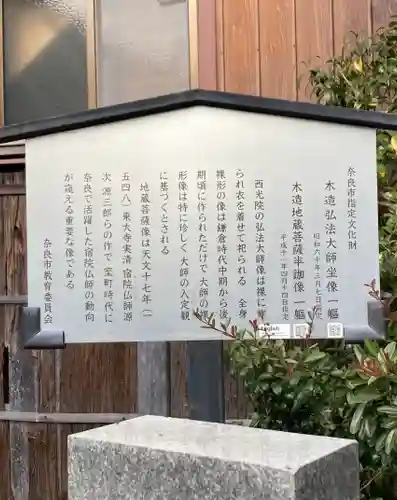 奈良市指定文化財
木造弘法大師坐像一軀
昭和六十年三月七日指定
木造地蔵菩薩半跏像一軀
平成十一年四月十四日指定
西光院の弘法大師像は裸に
られ衣を着せて祀られる 全身
裸形の像は鎌倉時代中期から後
期頃に作られただけで 大師の裸
形像は特に珍しく 大師の入定観
に基づくとされる
地蔵菩薩像は天文十七年(一
五四八)東大寺実清 宿院仏師源
次 源三郎らの作で 室町時代に
奈良で活躍した宿院仏師の動向
が窺える重要な像である
奈良市教育委員会